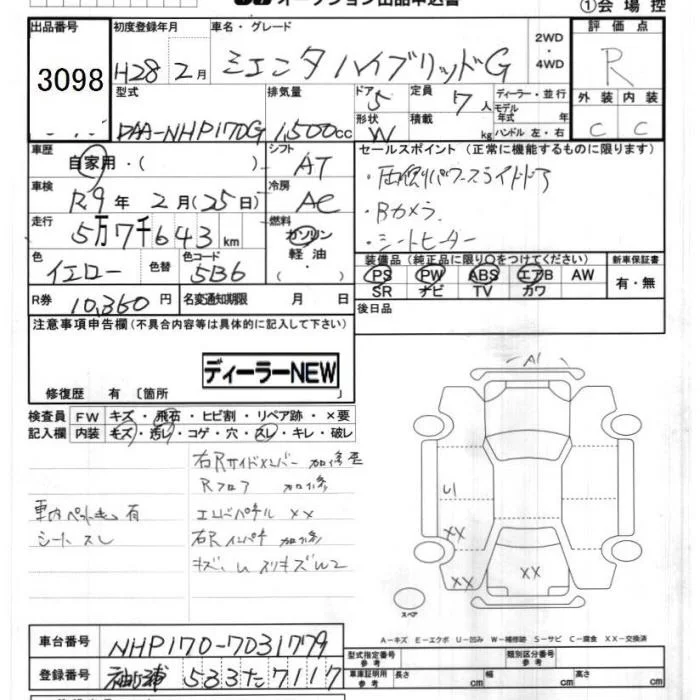 オークション出品申込書
①会場控
出品番号
3098
初度登録年月
H28 2月
車名・グレード
ミエンタ ハイブリッドG
2WD
・
4WD
評価点
R
型式
DAA-NHP170G
排気量
1,500cc
ドア
5
形状
W
定員
7人
積載
kg
ディーラー・並行
モデル年式 年式
ハンドル 左・右
外装 内装
C C
車歴
自家用・( )
シフト
AT
車検
R9年 2月(25日)
冷房
AC
走行
5万7千643km
燃料
ガソリン
軽油
色
イエロー
色替
色コード
5B6
R券
10,360円
名変通知期限 月 日
セールスポイント(正常に機能するものに限ります)
・両側パワースライドドア
・Bカメラ
・シートヒーター
装備品(純正品に限り○をつけてください)
PS PW ABS エアB AW
SR ナビ TV カワ
新車保証書
有・無
後日品
注意事項申告欄(不具合内容等は具体的に記入して下さい)
ディーラーNEW
修復歴 有〔箇所 〕
検査員記入欄
FW キズ・飛石・ヒビ割・リペア跡・×要
内装 キズ・汚レ・コゲ・穴・スレ・キレ・破レ
右Rサイドメンバー 加修歪
Rフロア 加修
車内ペット毛 有
シート スレ
エンドパネル XX
右Rインパネ 加修
A1
U1
XX
XX
XX
スペア
A-キズ E-エクボ U-凹み W-補修跡 S-サビ C-腐食 XX-交換済
車台番号
NHP170-7031779
登録番号
袖ヶ浦 533た7117
型式指定番号
参考
類別区分番号
参考
車庫証明用
参考
長さ cm 幅 cm 高さ cm